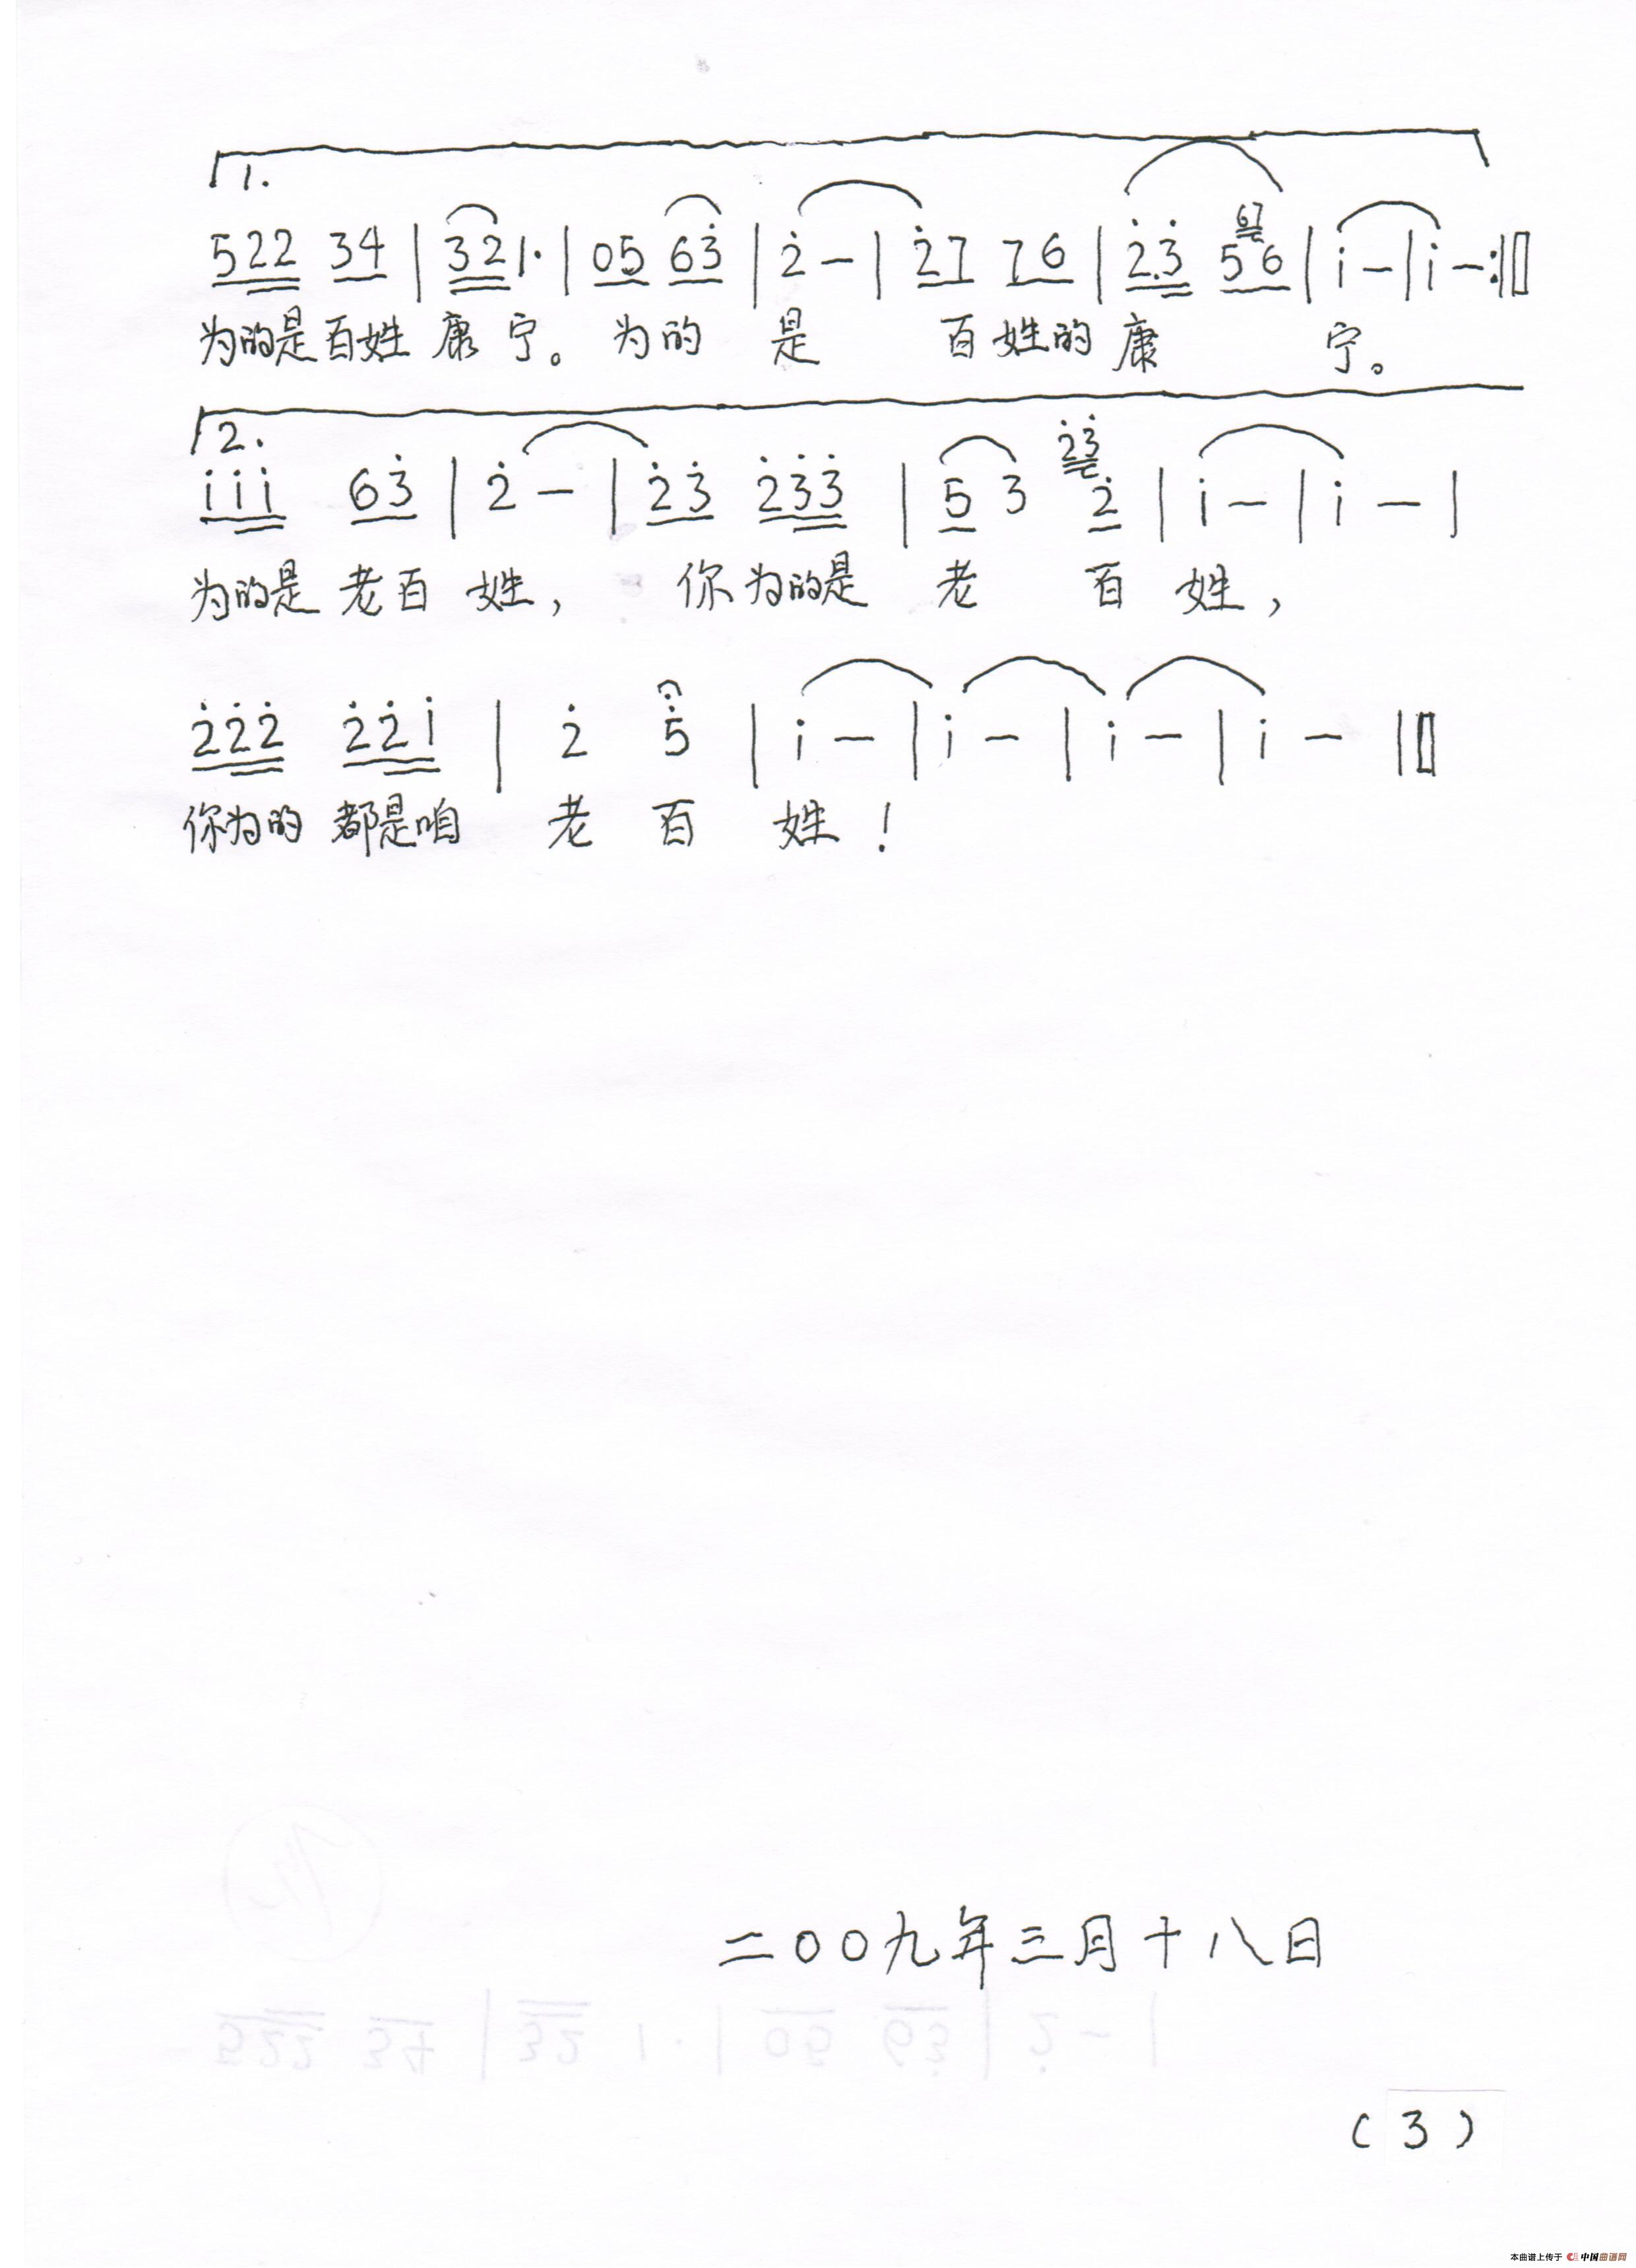 1.
5 2 2 3 4 | 3 2 1· | 0 5 6 3̇ | 2̇ – | 2̇ 7 7 6 | 2̇· 3̇ 67 5 6 | i – | i – :‖
为的是百姓 康 宁。 为的 是 百姓的康 宁。
2.
i i i 6 3̇ | 2̇ – | 2̇ 3̇ 2̇ 3̇ 3̇ | 5 3 2̇3̇ 2̇ | i – | i – |
为的是 老百 姓， 你为的是 老 百 姓，
2̇ 2̇ 2̇ 2̇ 2̇ i | 2̇ 5̇ | i – | i – | i – | i – ‖
你为的 都是咱 老 百 姓！
二00九年三月十八日
（3）
本曲谱上传于 中国曲谱网